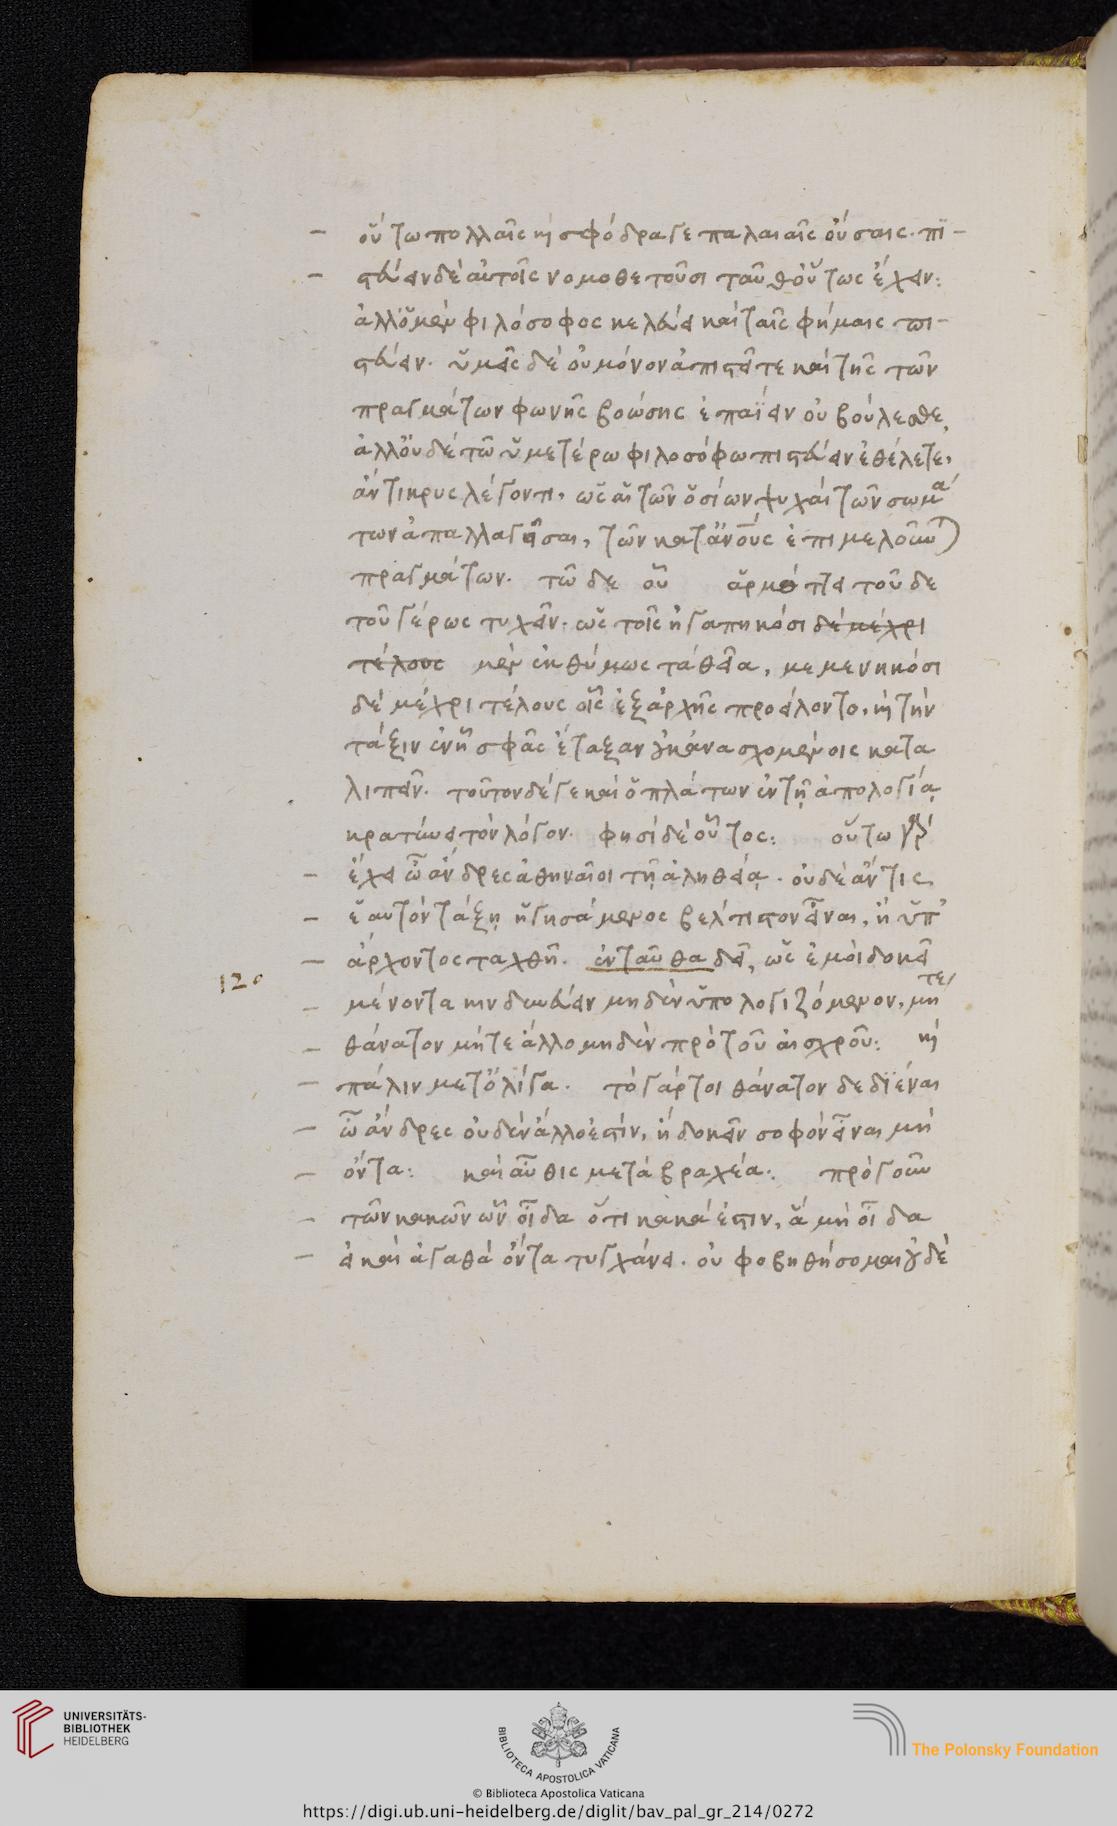 οὕτω πολλαῖς καὶ σφόδρα γε παλαιαῖς οὔσαις. πι-
στεύειν δὲ αὐτοῖς νομοθετοῦσι ταῦθ' οὕτως ἔχειν:
ἀλλ' ὁ μὲν φιλόσοφος κελεύει καὶ ταῖς φήμαις πι-
στεύειν. ὑμεῖς δὲ οὐ μόνον ἀπιστεῖτε καὶ τῆς τῶν
πραγμάτων φωνῆς βοώσης ἐπαΐειν οὐ βούλεσθε,
ἀλλ' οὐδὲ τῶ ὑμετέρω φιλοσόφω πιστεύειν ἐθέλετε,
ἄντικρυς λέγοντι, ὡς αἱ τῶν ὁσίων ψυχαὶ τῶν σωμά
των ἀπαλλαγεῖσαι, τῶν κατ' ἀνους ἐπιμελοῦνται
πραγμάτων. τῶ δε οὖ ἁρμόττει τοῦδε
τοῦ γέρως τυχεῖν. ὡς τοῖς ἠγαπηκόσι δὲ μέχρι
τέλους μὲν ἐκθύμως τὰ θεῖα, μεμενηκόσι
δὲ μέχρι τέλους οἷς ἐξ ἀρχῆς προείλοντο, καὶ τὴν
τάξιν ἐν ᾗ σφᾶς ἔταξαν οὐκ ἀνασχομένοις κατα
λιπεῖν. τοῦτον δέ γε καὶ ὁ πλάτων ἐν τῇ ἀπολογίᾳ
κρατύνει τὸν λόγον. φησὶ δὲ οὕτως: οὕτω γὰρ
ἔχει ὦ ἄνδρες ἀθηναῖοι τῇ ἀληθείᾳ. οὗ δὲ ἄν τις
ἑαυτὸν τάξῃ ἡγησάμενος βέλτιστον εἶναι, ἢ ὑπ'
ἄρχοντος ταχθῆ. ἐνταῦθα δεῖ, ὡς ἐμοὶ δοκεῖ
120
μένοντα κινδυνεύειν μηδὲν ὑπολογιζόμενον, μήτε
θάνατον μήτε ἄλλο μηδὲν πρὸ τοῦ αἰσχροῦ: καὶ
πάλιν μετ' ὀλίγα. τὸ γάρ τοι θάνατον δεδϊέναι
ὦ ἄνδρες οὐδὲν ἄλλο ἐστὶν, ἢ δοκεῖν σοφὸν εἶναι μὴ
ὄντα: καὶ αὖθις μετὰ βραχέα: πρὸ γοῦν
τῶν κακῶν ὧν οἶδα ὅτι κακά ἐστιν, ἃ μὴ οἶδα
εἰ καὶ ἀγαθὰ ὄντα τυγχάνει. οὐ φοβηθήσομαι οὐδὲ
UNIVERSITÄTS-
BIBLIOTHEK
HEIDELBERG
BIBLIOTECA APOSTOLICA VATICANA
© Biblioteca Apostolica Vaticana
The Polonsky Foundation
https://digi.ub.uni-heidelberg.de/diglit/bav_pal_gr_214/0272